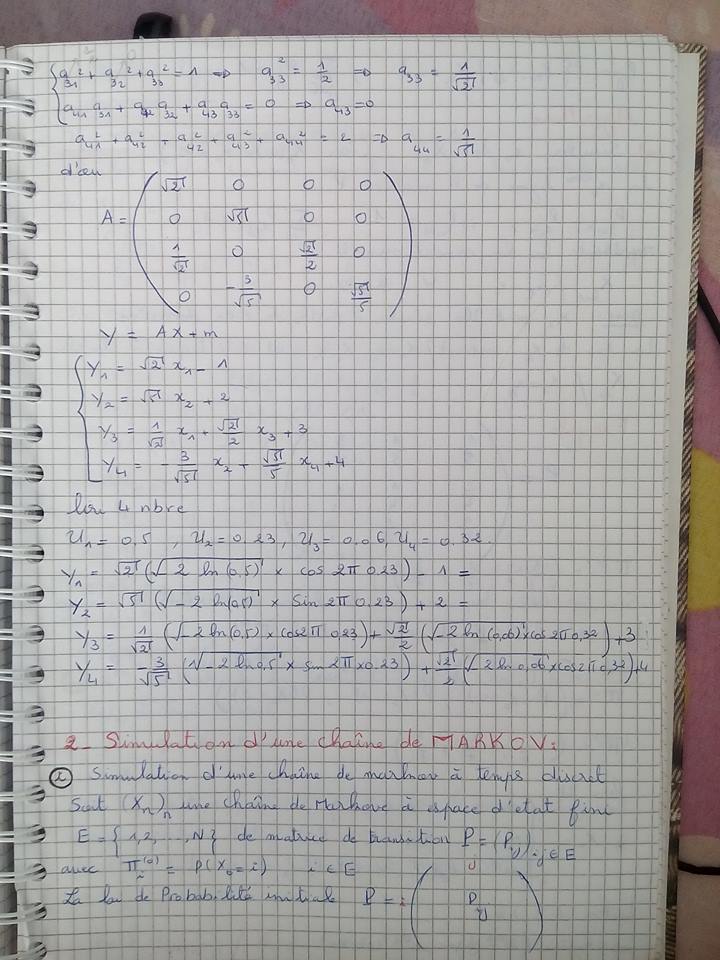 a₃₁² + a₃₂² + a₃₃² = 1 ⇒ a₃₃² = 1/2 ⇒ a₃₃ = 1/√2
a₄₁ a₃₁ + a₄₂ a₃₂ + a₄₃ a₃₃ = 0 ⇒ a₄₃ = 0
a₄₁² + a₄₂² + a₄₂² + a₄₃² + a₄₄² = 2 ⇒ a₄₄ = 1/√5
d'ou
√2 0 0 0
A = 0 √5 0 0
1/√2 0 √2/2 0
0 -3/√5 0 √5/5
Y = AX + m
Y₁ = √2 x₁ - 1
Y₂ = √5 x₂ + 2
Y₃ = 1/√2 x₁ + √2/2 x₃ + 3
Y₄ = -3/√5 x₂ + √5/5 x₄ + 4
4 nbre
U₁ = 0,5 , U₂ = 0,23, U₃ = 0,06, U₄ = 0,32.
Y₁ = √2 (√-2 ln(0,5) × cos 2π 0,23) - 1 =
Y₂ = √5 (√-2 ln(0,5) × Sin 2π 0.23) + 2 =
Y₃ = 1/√2 (√-2 ln(0,5) × cos2π 0,23) + √2/2 (√-2 ln(0,06) × cos 2π 0,32) + 3
Y₄ = -3/√5 (√-2 ln 0,5 × sin 2π × 0.23) + √2/2 (√-2 ln 0,06 × cos 2π 0,32) + 4
2 - Simulation d'une chaîne de MARKOV :
① Simulation d'une chaîne de markov à temps discret
Soit (Xn)n une chaîne de Markove à espace d'etat fini
E = { 1, 2, ..., N } de matrice de transition P = (Pij) i,j ∈ E
avec πᵢ⁽⁰⁾ = P(X₀ = i) i ∈ E
j
La loi de Probabilité initiale P = i ( Pij )